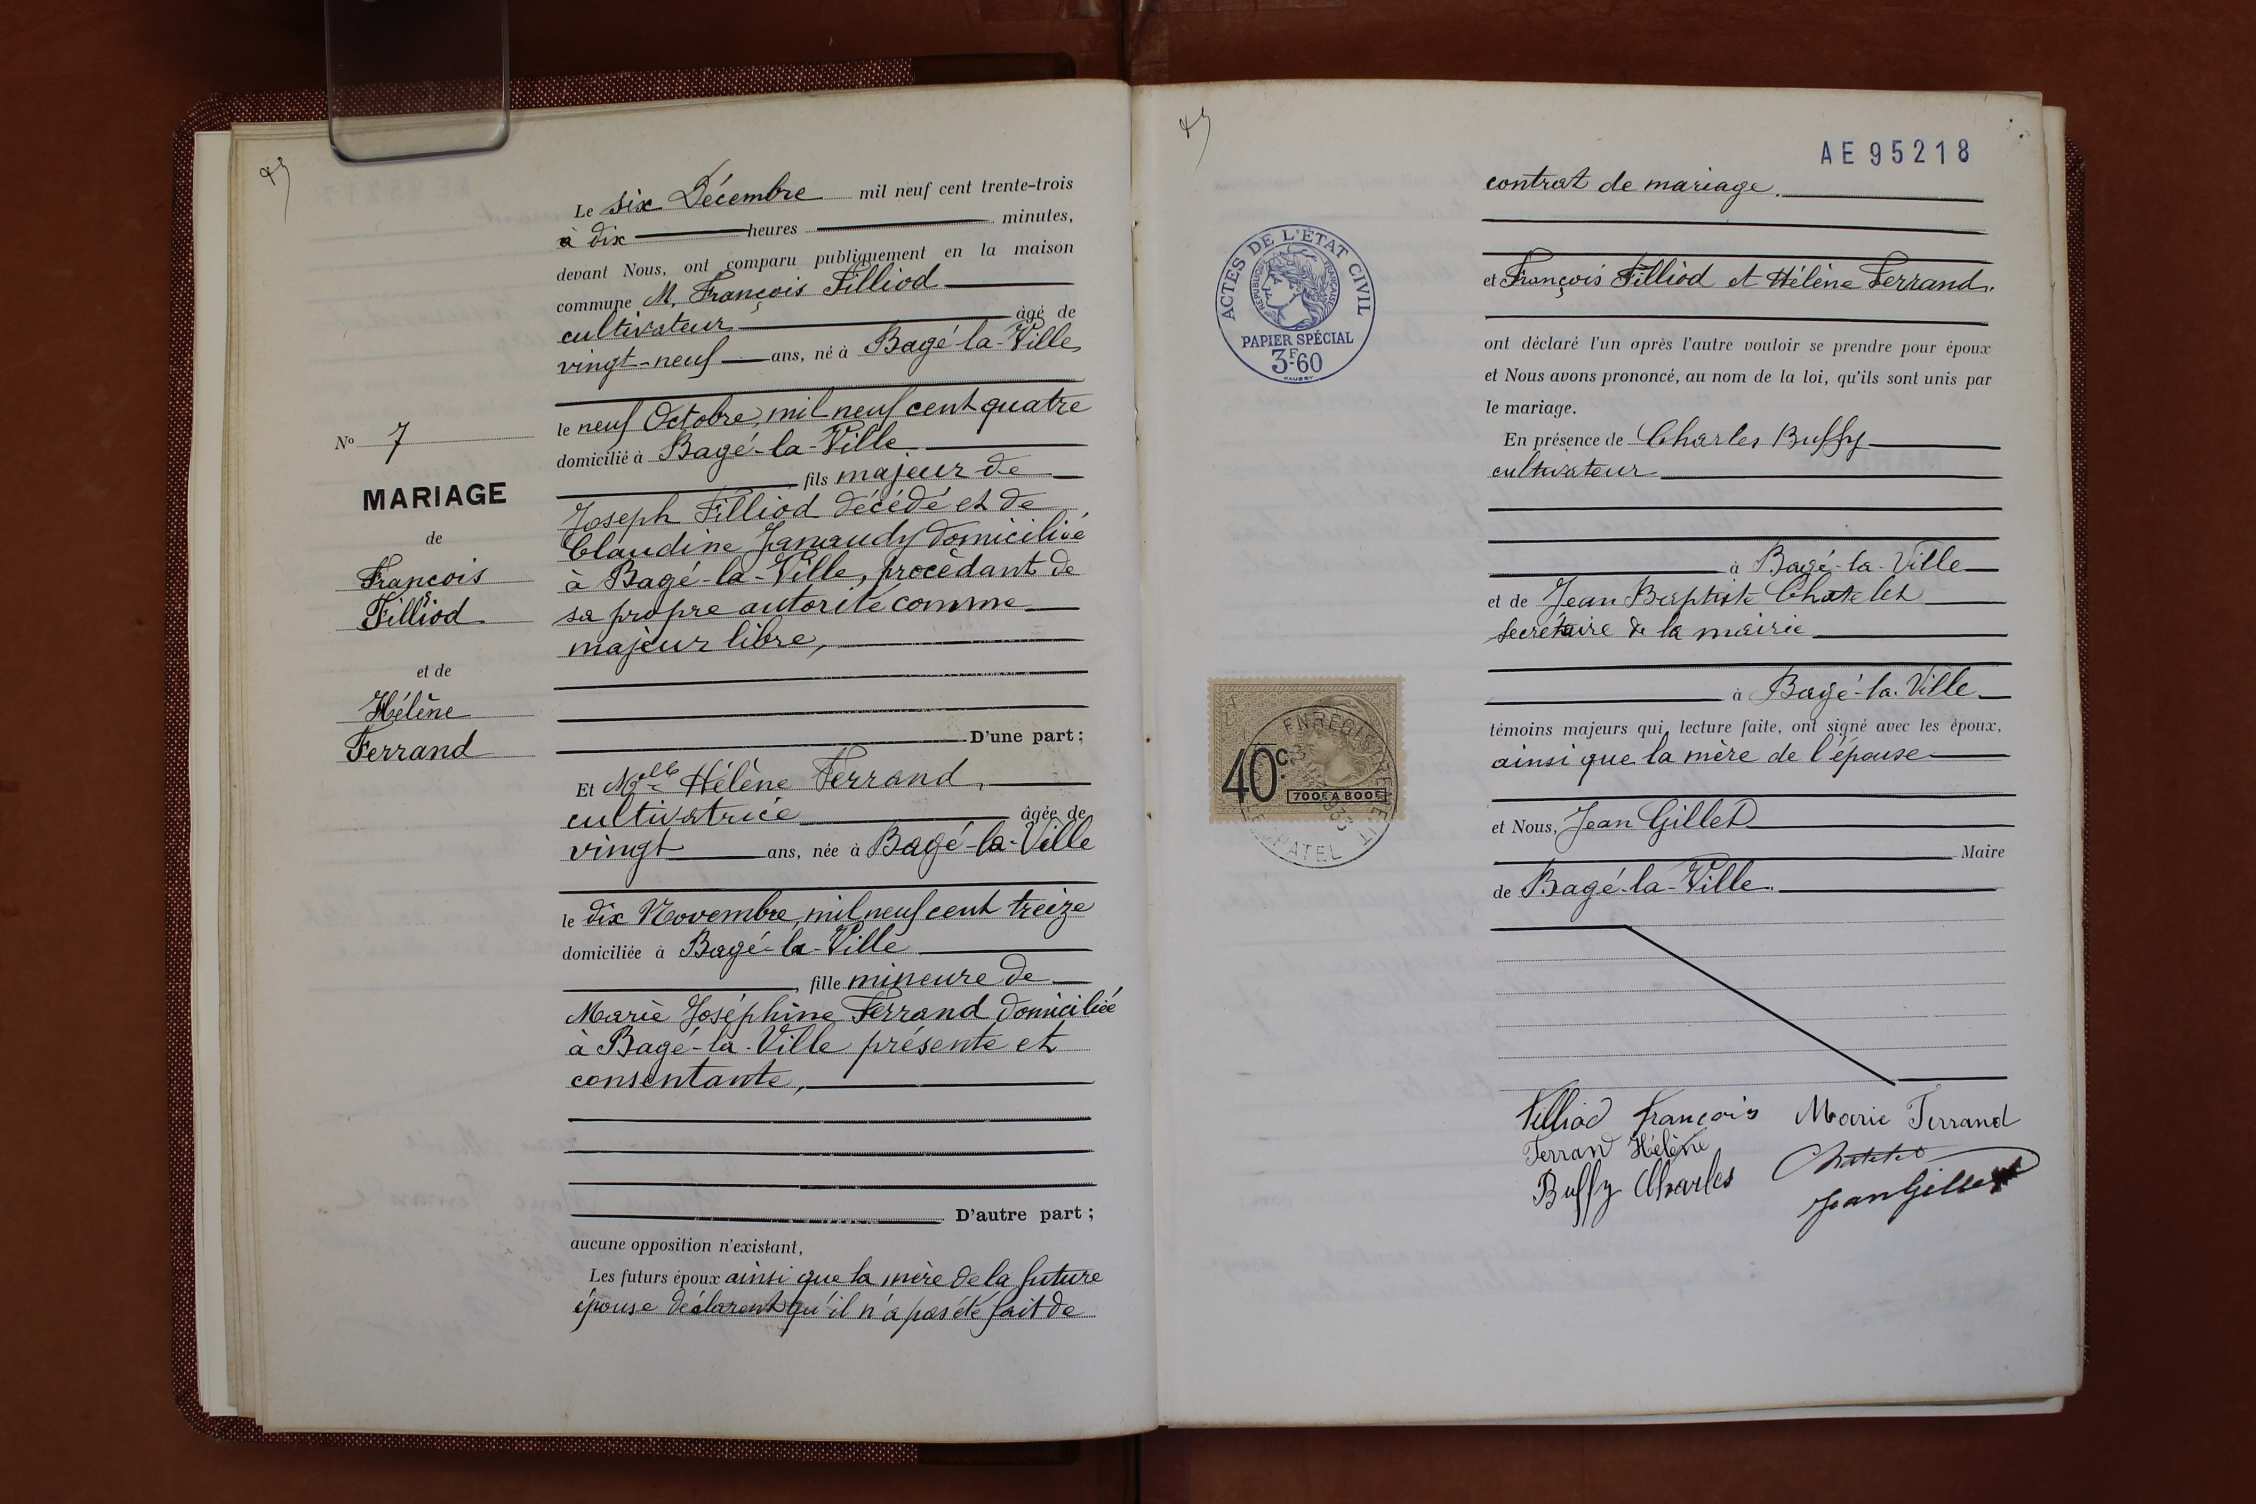 Le six Décembre mil neuf cent trente-trois
à dix heures minutes,
devant Nous, ont comparu publiquement en la maison
commune M. François Filliod
cultivateur âgé de
vingt-neuf ans, né à Bagé-la-Ville
le neuf Octobre, mil neuf cent quatre
domicilié à Bagé-la-Ville
fils majeur de
Joseph Filliod décédé et de
Claudine Janaudy domiciliée
à Bagé-la-Ville, procèdant de
sa propre autorité comme
majeur libre,
D'une part;
Nº 7
MARIAGE
de
François
Filliod
et de
Hélène
Ferrand
Et Melle Hélène Ferrand,
cultivatrice âgée de
vingt ans, née à Bagé-la-Ville
le dix Novembre, mil neuf cent treize
domiciliée à Bagé-la-Ville
, fille mineure de
Marie Joséphine Ferrand domiciliée
à Bagé-la-Ville présente et
consentante,
D'autre part;
aucune opposition n'existant,
Les futurs époux ainsi que la mère de la future
épouse déclarent qu'il n'a pas été fait de
AE95218
contrat de mariage.
ACTES DE L'ÉTAT CIVIL
RÉPUBLIQUE FRANÇAISE
PAPIER SPÉCIAL
3F.60
et François Filliod et Hélène Ferrand.
ont déclaré l'un après l'autre vouloir se prendre pour époux
et Nous avons prononcé, au nom de la loi, qu'ils sont unis par
le mariage.
En présence de Charles Buffy
cultivateur
à Bagé-la-Ville
et de Jean Baptiste Chatelet
secrétaire de la mairie
à Bagé-la-Ville
témoins majeurs qui, lecture faite, ont signé avec les époux,
ainsi que la mère de l'épouse
40c.
700F A 800F
ENREGISTREMENT
et Nous, Jean Gillet
Maire
de Bagé-la-Ville.
Filliod françois Marie Ferrand
Ferrand Hélène Chatelet
Buffy Charles Jean Gillet